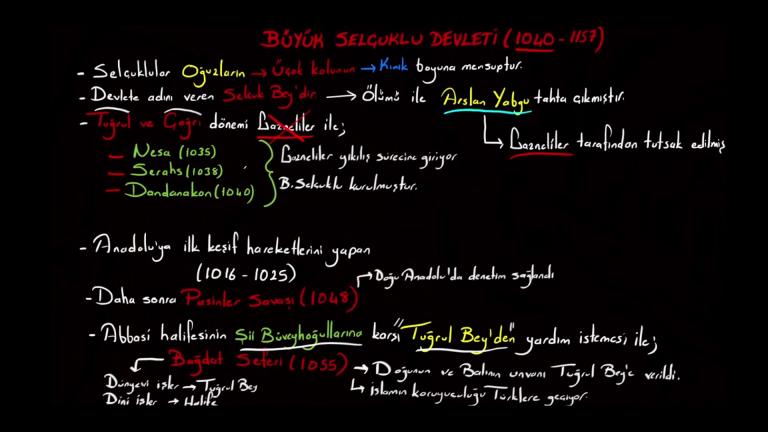 BÜYÜK SELÇUKLU DEVLETİ (1040 - 1157)
- Selçuklular Oğuzların → Üçok kolunun → Kınık boyuna mensuptur.
- Devlete adını veren Selçuk Bey'dir → Ölümü ile Arslan Yabgu tahta çıkmıştır.
→ Gazneliler tarafından tutsak edilmiş
- Tuğrul ve Çağrı dönemi Gazneliler ile;
- Nesa (1035)
- Serahs (1038)
- Dandanakan (1040)
Gazneliler yıkılış sürecine giriyor
B. Selçuklu kurulmuştur.
- Anadolu'ya ilk keşif hareketlerini yapan
(1016 - 1025)
→ Doğu Anadolu'da denetim sağlandı
- Daha sonra Pasinler Savaşı (1048)
- Abbasi halifesinin Şii Büveyhoğullarına karşı "Tuğrul Bey'den" yardım istemesi ile;
Bağdat Seferi (1055) → Doğunun ve Batının unvanı Tuğrul Bey'e verildi.
→ İslamın koruyuculuğu Türklere geçiyor.
Dünyevi işler → Tuğrul Bey
Dini işler → Halife